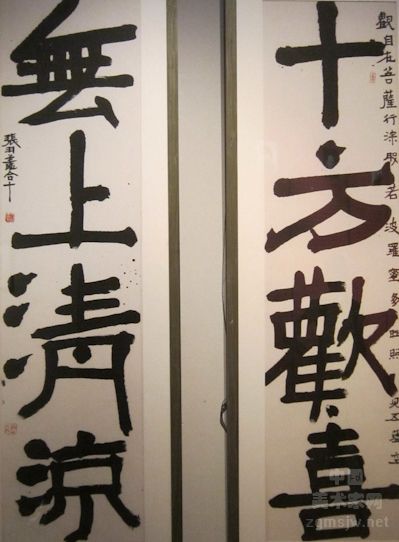 十方歡喜
觀自在菩薩行深般若波羅蜜多時照見五蘊皆
無上清涼
張羽翥合十
中国美术家网
zgmsjw.net